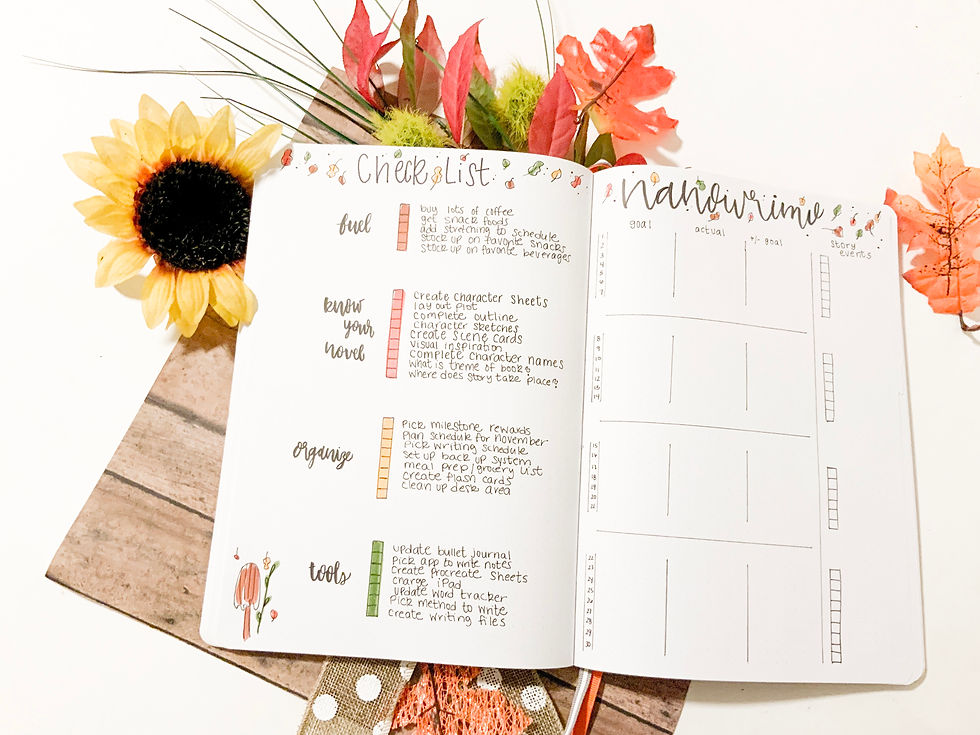 Check List
fuel
buy lots of coffee
get snack foods
add stretching to schedule
stock up on favorite snacks
stock up on favorite beverages
know
your
novel
Create Character Sheets
lay out plot
complete outline
character sketches
create scene cards
visual inspiration
complete character names
what is theme of book?
where does story take place?
organize
Pick milestone rewards
Plan schedule for November
Pick writing schedule
set up back up system
meal prep/grocery list
create flash cards
clean up desk area
tools
update bullet journal
Pick app to write notes
create procreate sheets
charge iPad
update word tracker
Pick method to write
create writing files
nanowrimo
goal
actual
+/- goal
story
events
1
2
3
4
5
6
7
8
9
10
11
12
13
14
15
16
17
18
19
20